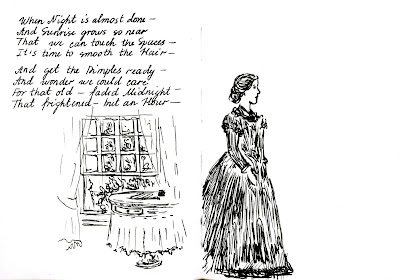 When Night is almost done –
And Sunrise grows so near
That we can touch the Spaces –
It's time to smooth the Hair –
And get the Dimples ready –
And wonder we could care
For that old – faded Midnight –
That frightened – but an Hour –